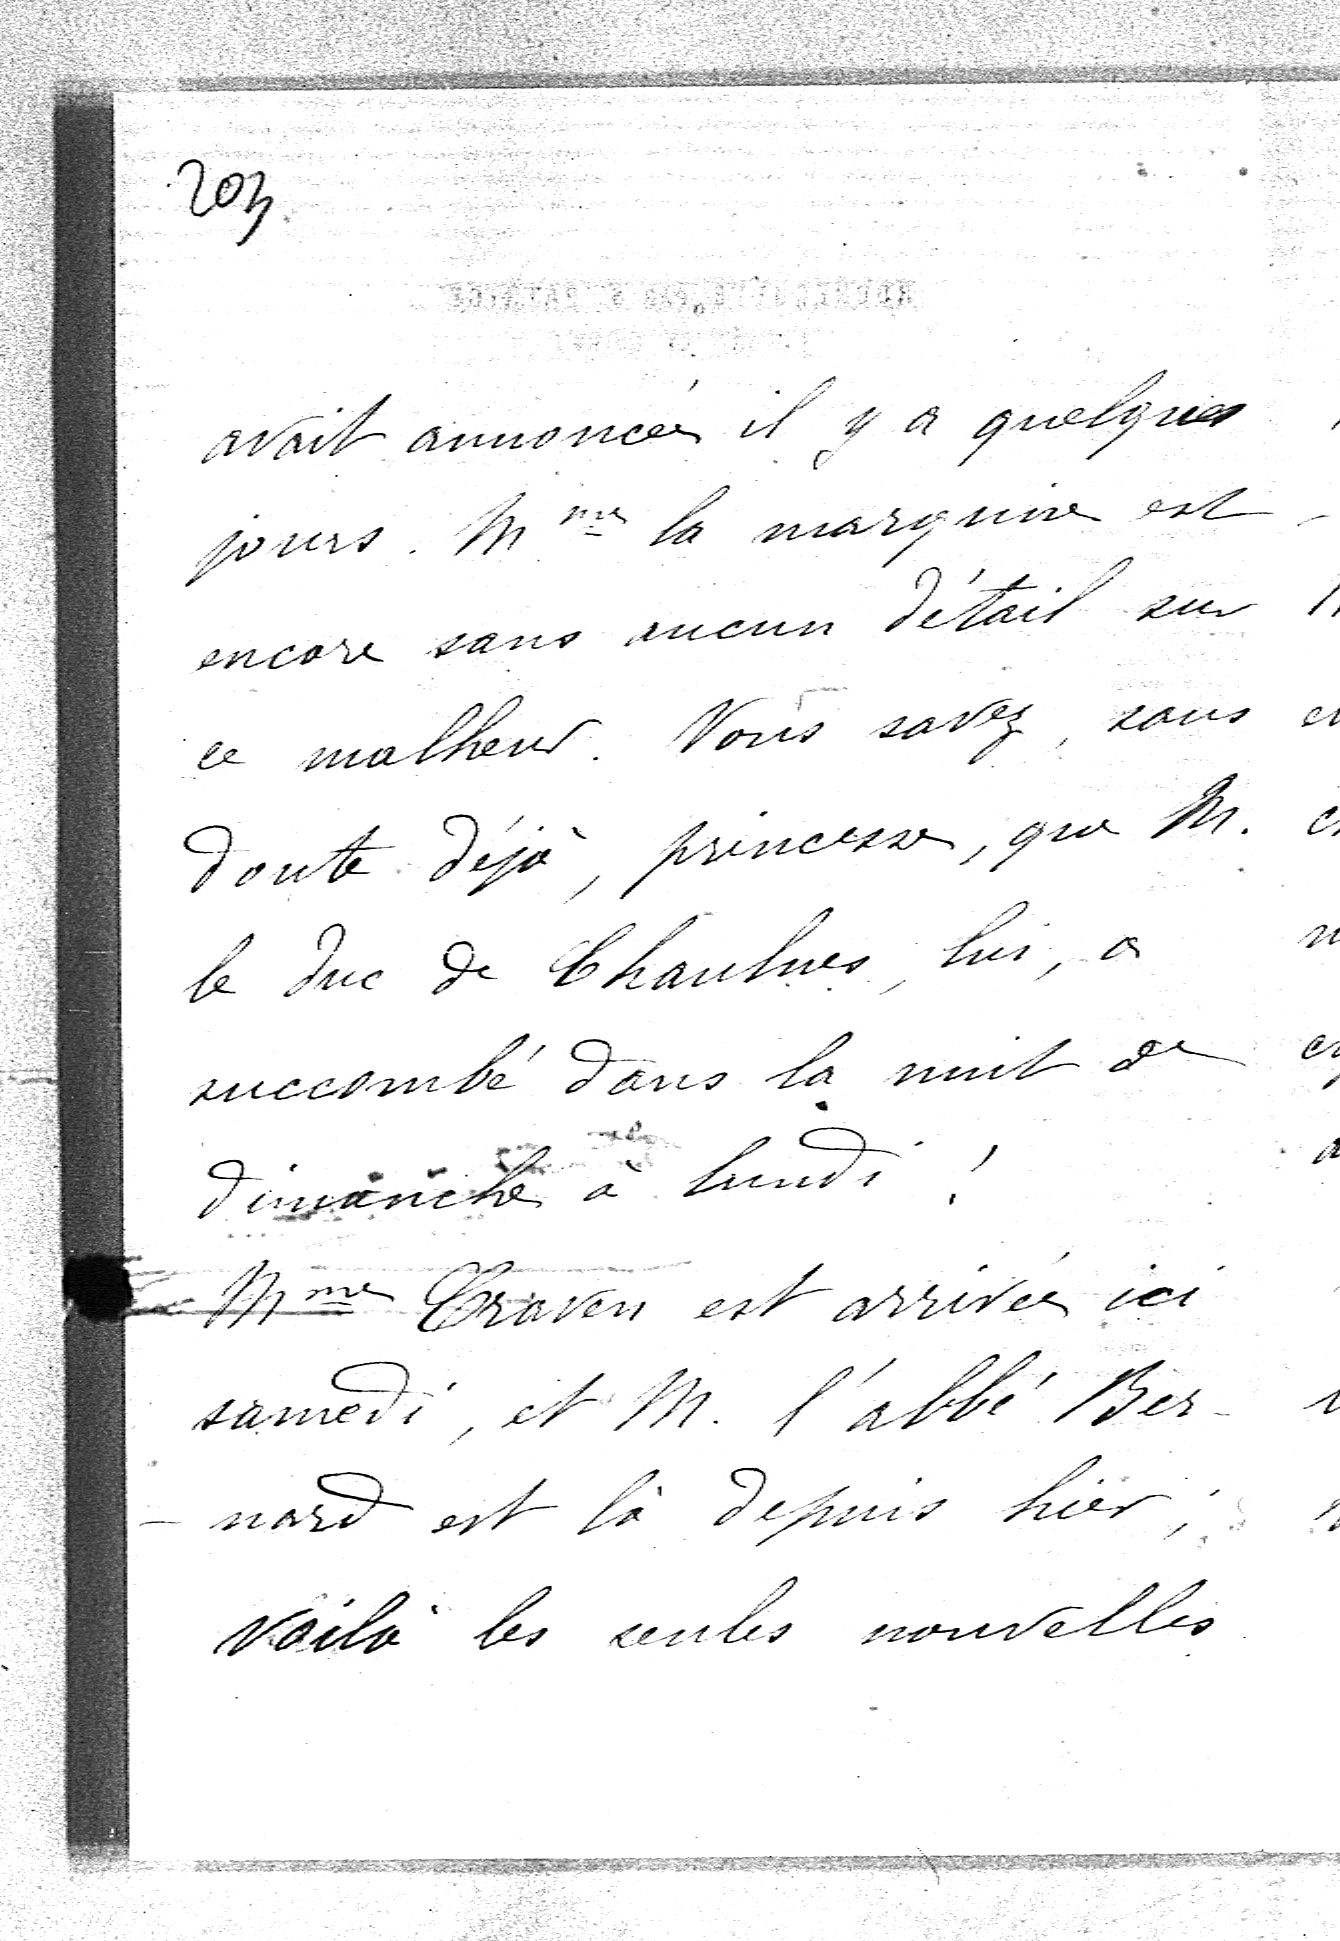 203
avait annoncée il y a quelques
jours. Mme la marquise est
encore sans aucun détail sur
ce malheur. Vous savez, sans
doute déjà, princesse, que M.
le duc de Chaulnes, lui, a
succombé dans la nuit de
dimanche à lundi !
Mme Craven est arrivée ici
samedi, et M. l'abbé Ber-
- nard est là depuis hier ;
voilà les seules nouvelles